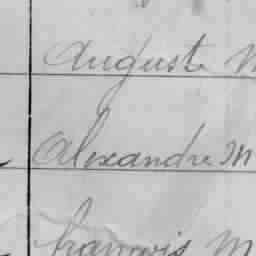 Auguste M
Alexandre M
francois M